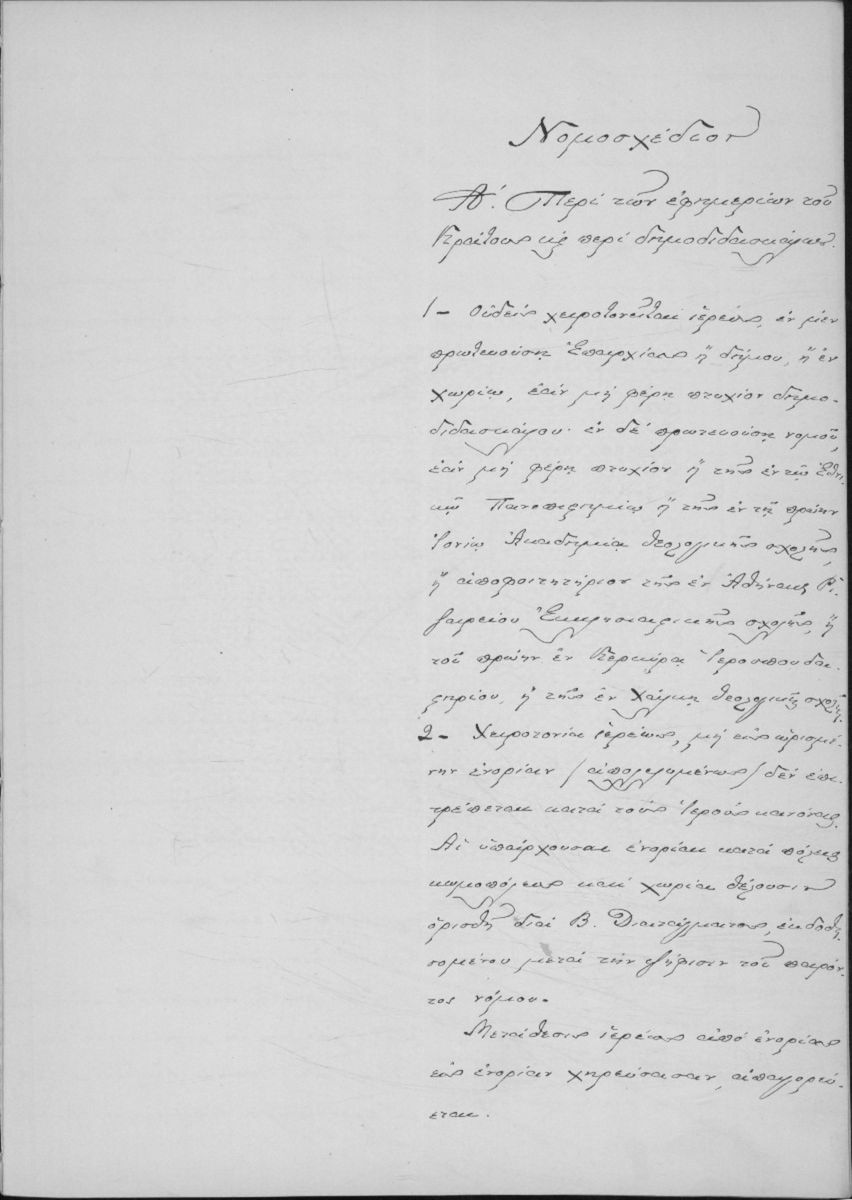 Νομοσχέδιον
Α΄. Περὶ τῶν ἐφημερίων τοῦ
Κράτους κ̀ περὶ δημοδιδασκάλων.
1 – Οὐδεὶς χειροτονεῖται ἱερεὺς, ἐν μὲν
πρωτευούσῃ Ἐπαρχίας ἢ δήμου, ἢ ἐν
χωρίῳ, ἐὰν μὴ φέρῃ πτυχίον δημο-
διδασκάλου· ἐν δὲ πρωτευούσῃ νομοῦ,
ἐὰν μὴ φέρῃ πτυχίον ἢ τῆς ἐν τῷ Ἐθνι-
κῷ Πανεπιστημίῳ ἢ τῆς ἐν τῇ πρώην
Ἰονίῳ Ἀκαδημίᾳ θεολογικῆς σχολῆς,
ἢ ἀποφοιτητήριον τῆς ἐν Ἀθήναις Ρι-
ζαρείου Ἐκκλησιαστικῆς σχολῆς, ἢ
τοῦ πρώην ἐν Κερκύρᾳ Ἱεροσπουδα-
στηρίου, ἢ τῆς ἐν Χάλκῃ θεολογικῆς σχολῆς.
2 – Χειροτονία ἱερέως, μὴ εἰς ὡρισμέ-
νην ἐνορίαν /ἀπολελυμένως/ δὲν ἐπι-
τρέπεται κατὰ τοὺς Ἱεροὺς κανόνας.
Αἱ ὑπάρχουσαι ἐνορίαι κατὰ πόλεις
κωμοπόλεις καὶ χωρία θέλουσιν
ὁρισθῆ διὰ Β. Διατάγματος, ἐκδοθη-
σομένου μετὰ τὴν ψήφισιν τοῦ παρόν-
τος νόμου.
Μετάθεσις ἱερέως ἀπὸ ἐνορίας
εἰς ἐνορίαν χηρεύσασαν, ἀπαγορεύ-
εται.